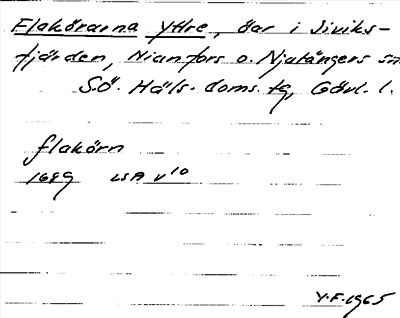 Flakörarna Yttre, öar i Siviks-
fjärden, Nianfors o. Njutångers sn
S.Ö. Häls. doms. tg, Gävl. l.
flakörn
1689 LSA V 10
Y.F. 1965